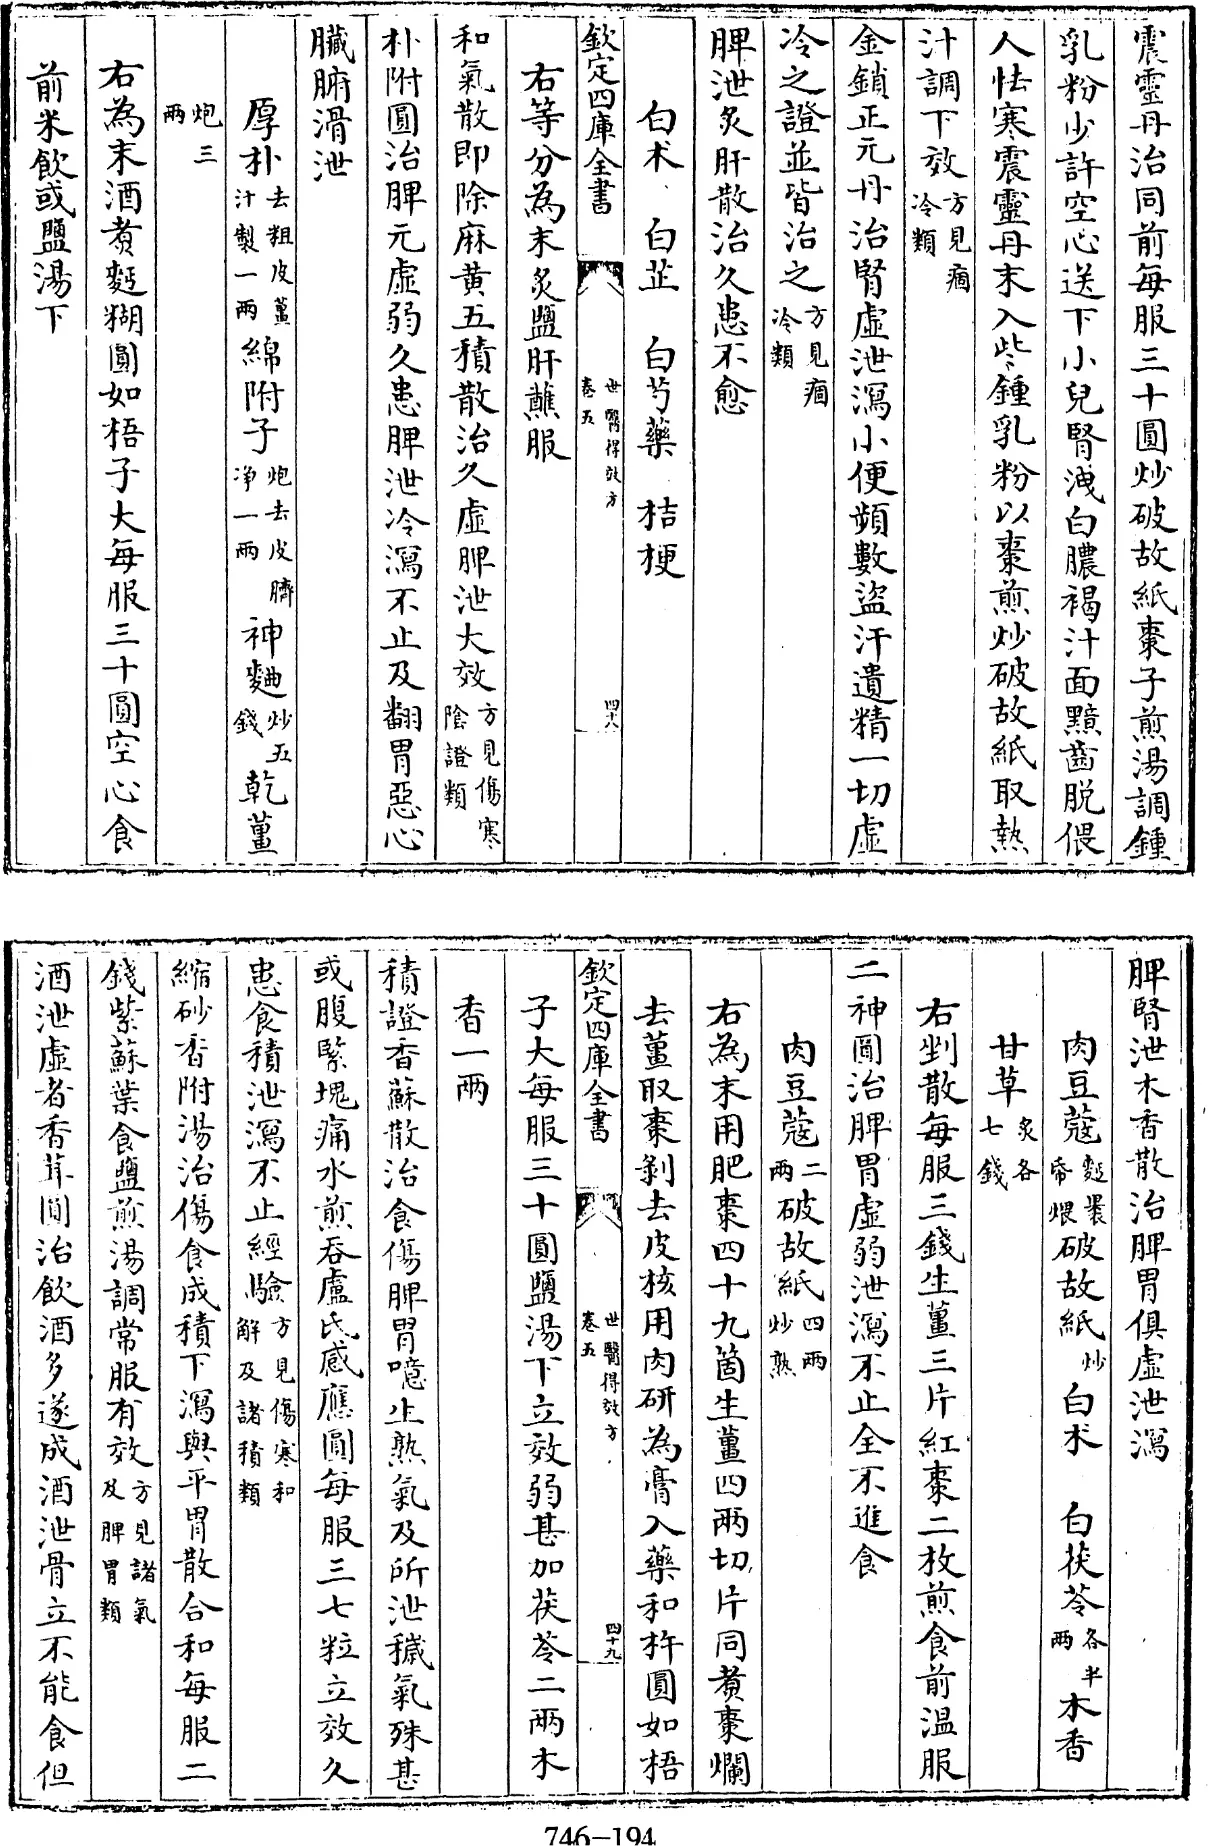 震靈丹治同前每服三十圓炒破故紙棗子煎湯調鍾
乳粉少許空心送下小兒腎洩白膿褐汁面黯齒脱偎
人怯寒震靈丹末入些鍾乳粉以棗煎炒破故紙取熱
汁調下效方見痼冷類
金鎖正元丹治腎虛泄瀉小便頻數盜汗遺精一切虛
冷之證並皆治之方見痼冷類
脾泄炙肝散治久患不愈
白术 白芷 白芍藥 桔梗
欽定四庫全書 世醫得效方 卷五 四十八
右等分為末炙鹽肝蘸服
和氣散即除麻黄五積散治久虛脾泄大效方見傷寒陰證類
朴附圓治脾元虛弱久患脾泄冷瀉不止及翻胃惡心
臟腑滑泄
厚朴去粗皮薑汁製一兩綿附子炮去皮臍净一兩神麯炒五錢乾薑
炮三兩
右為末酒煮麪糊圓如梧子大每服三十圓空心食
前米飲或鹽湯下
脾腎泄木香散治脾胃俱虛泄瀉
肉豆蔻麪裹帋煨破故紙炒白术 白茯苓各半兩木香
甘草炙各七錢
右剉散每服三錢生薑三片紅棗二枚煎食前温服
二神圓治脾胃虛弱泄瀉不止全不進食
肉豆蔻二兩破故紙四兩炒熟
右為末用肥棗四十九箇生薑四兩切片同煮棗爛
去薑取棗剝去皮核用肉研為膏入藥和杵圓如梧
欽定四庫全書 世醫得效方 卷五 四十九
子大每服三十圓鹽湯下立效弱甚加茯苓二兩木
香一兩
積證香蘇散治食傷脾胃噫止熟氣及所泄穢氣殊甚
或腹緊塊痛水煎吞盧氏感應圓每服三七粒立效久
患食積泄瀉不止經驗方見傷寒和解及諸積類
縮砂香附湯治傷食成積下瀉與平胃散合和每服二
錢紫蘇葉食鹽煎湯調常服有效方見諸氣及脾胃類
酒泄虛者香茸圓治飲酒多遂成酒泄骨立不能食但
746-194